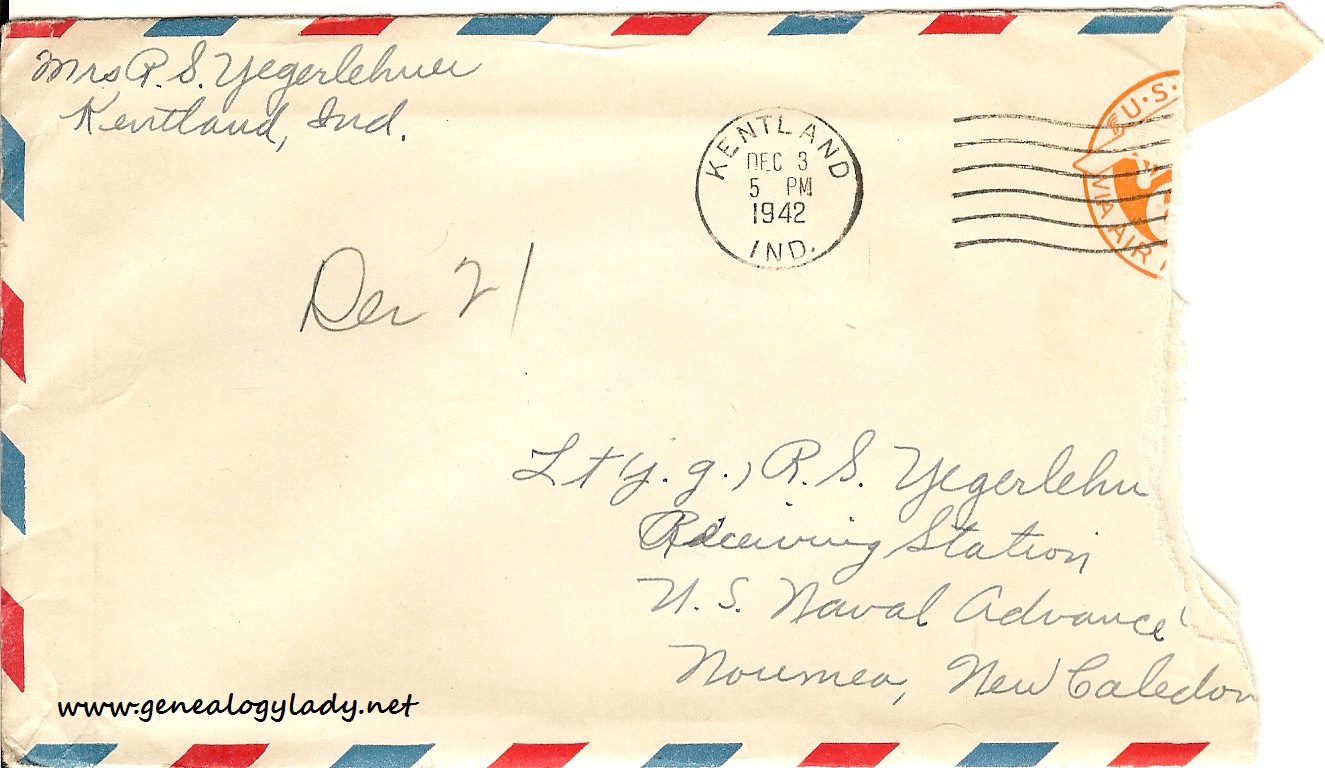 Mrs R. S. Yegerlehner
Kentland, Ind.
KENTLAND
DEC 3
5 PM
1942
IND.
U.S.
VIA AIR
Dec 21
Lt j. g., R. S. Yegerlehn
Receiving Station
U. S. Naval Advance
Noumea, New Caledon
www.genealogylady.net